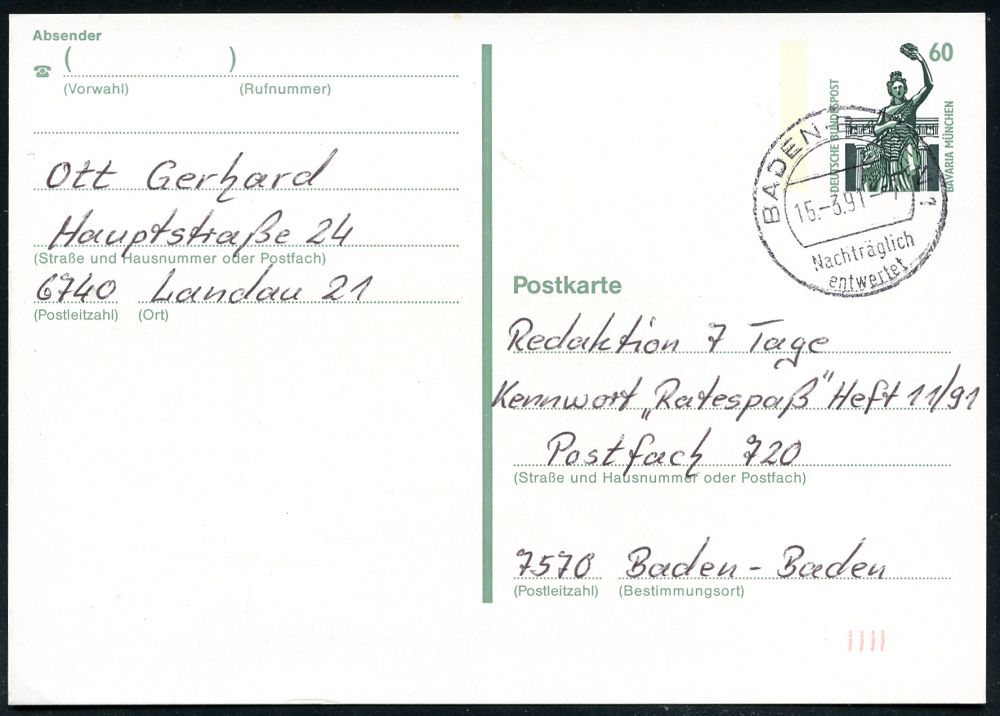 Absender
( )
(Vorwahl) (Rufnummer)
Ott Gerhard
Hauptstraße 24
(Straße und Hausnummer oder Postfach)
6740 Landau 21
(Postleitzahl) (Ort)
60
DEUTSCHE BUNDESPOST
BAVARIA MÜNCHEN
BADEN-
15.-3.91-
1
Nachträglich
entwertet
Postkarte
Redaktion 7 Tage
Kennwort „Ratespaß" Heft 11/91
Postfach 720
(Straße und Hausnummer oder Postfach)
7570 Baden-Baden
(Postleitzahl) (Bestimmungsort)